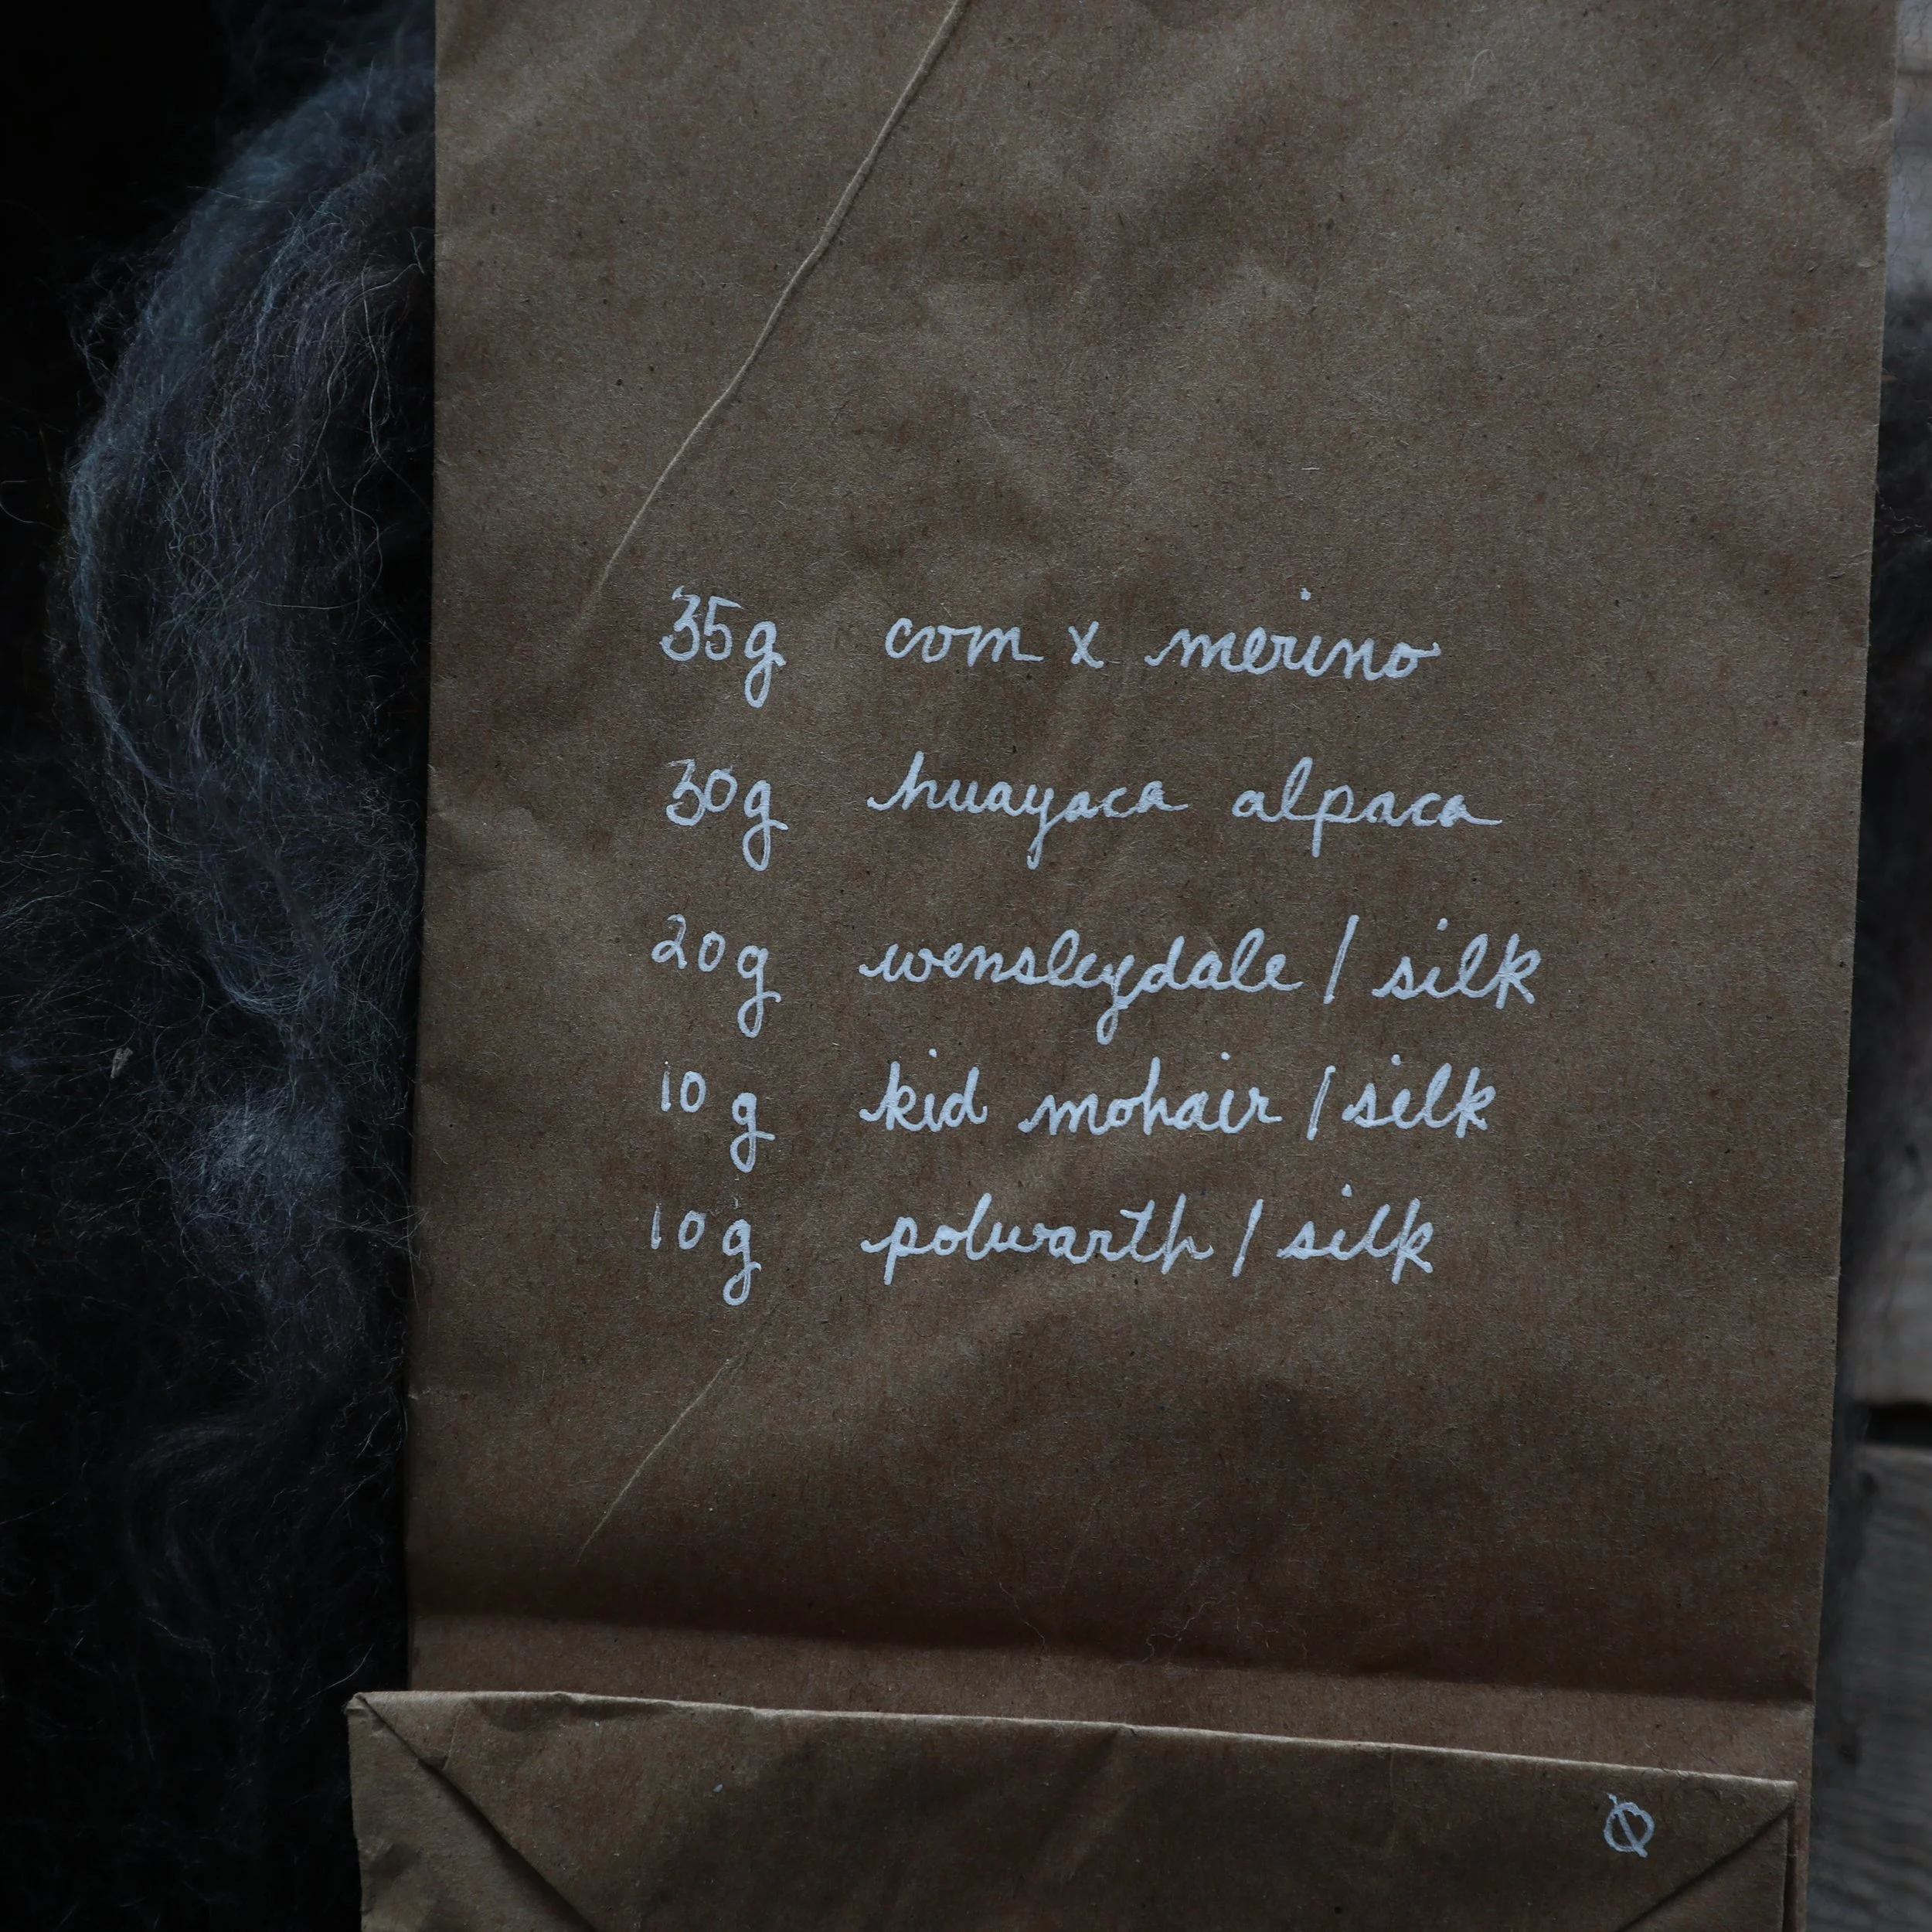 35g com x merino
30g huayaca alpaca
20g wensleydale / silk
10g kid mohair / silk
10g polwarth / silk
Ø